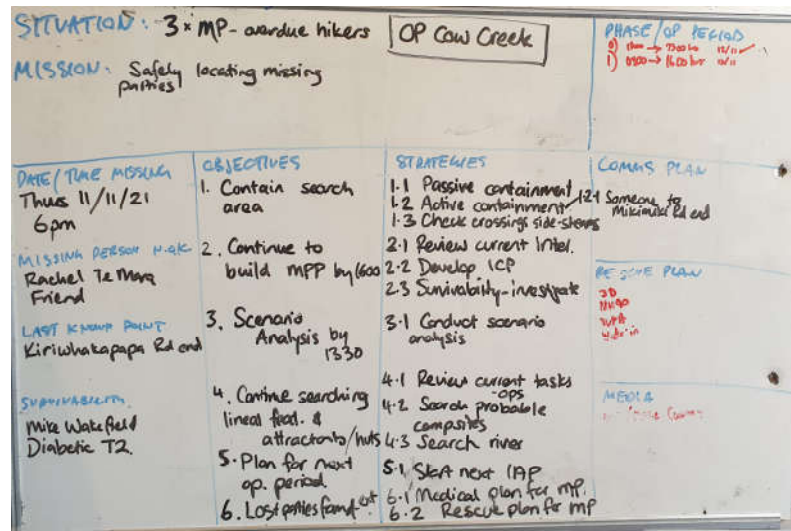 SITUATION: 3 x MP - overdue hikers
OP Cow Creek
PHASE/OP PERIOD
1) 0800 → 1600 hr
MISSION: Safely locating missing
parties
DATE/TIME MISSING
Thurs 11/11/21
6pm
MISSING PERSON N.O.K
Rachel Te Mara
Friend
LAST KNOWN POINT
Kiriwhakapapa Rd end
SURVIVABILITY
Mike Wakefield
Diabetic T2.
OBJECTIVES
1. Contain search
area
2. Continue to
build MPP by 1600
3. Scenario
Analysis by
1330
4. Continue searching
lineal feat. &
attractants/huts
5. Plan for next
op. period.
6. Lost parties found
STRATEGIES
1.1 Passive containment
1.2 Active containment
1.2.1 Someone to
Mikimiki Rd end
1.3 Check crossings side-streams
2.1 Review current Intel.
2.2 Develop ICP
2.3 Survivability - investigate
3.1 Conduct scenario
analysis
4.1 Review current tasks
-ops
4.2 Search probable
campsites
4.3 Search river
5.1 Start next IAP
6.1 Medical plan for MP.
6.2 Rescue plan for MP
COMMS PLAN
RESCUE PLAN
MEDIA